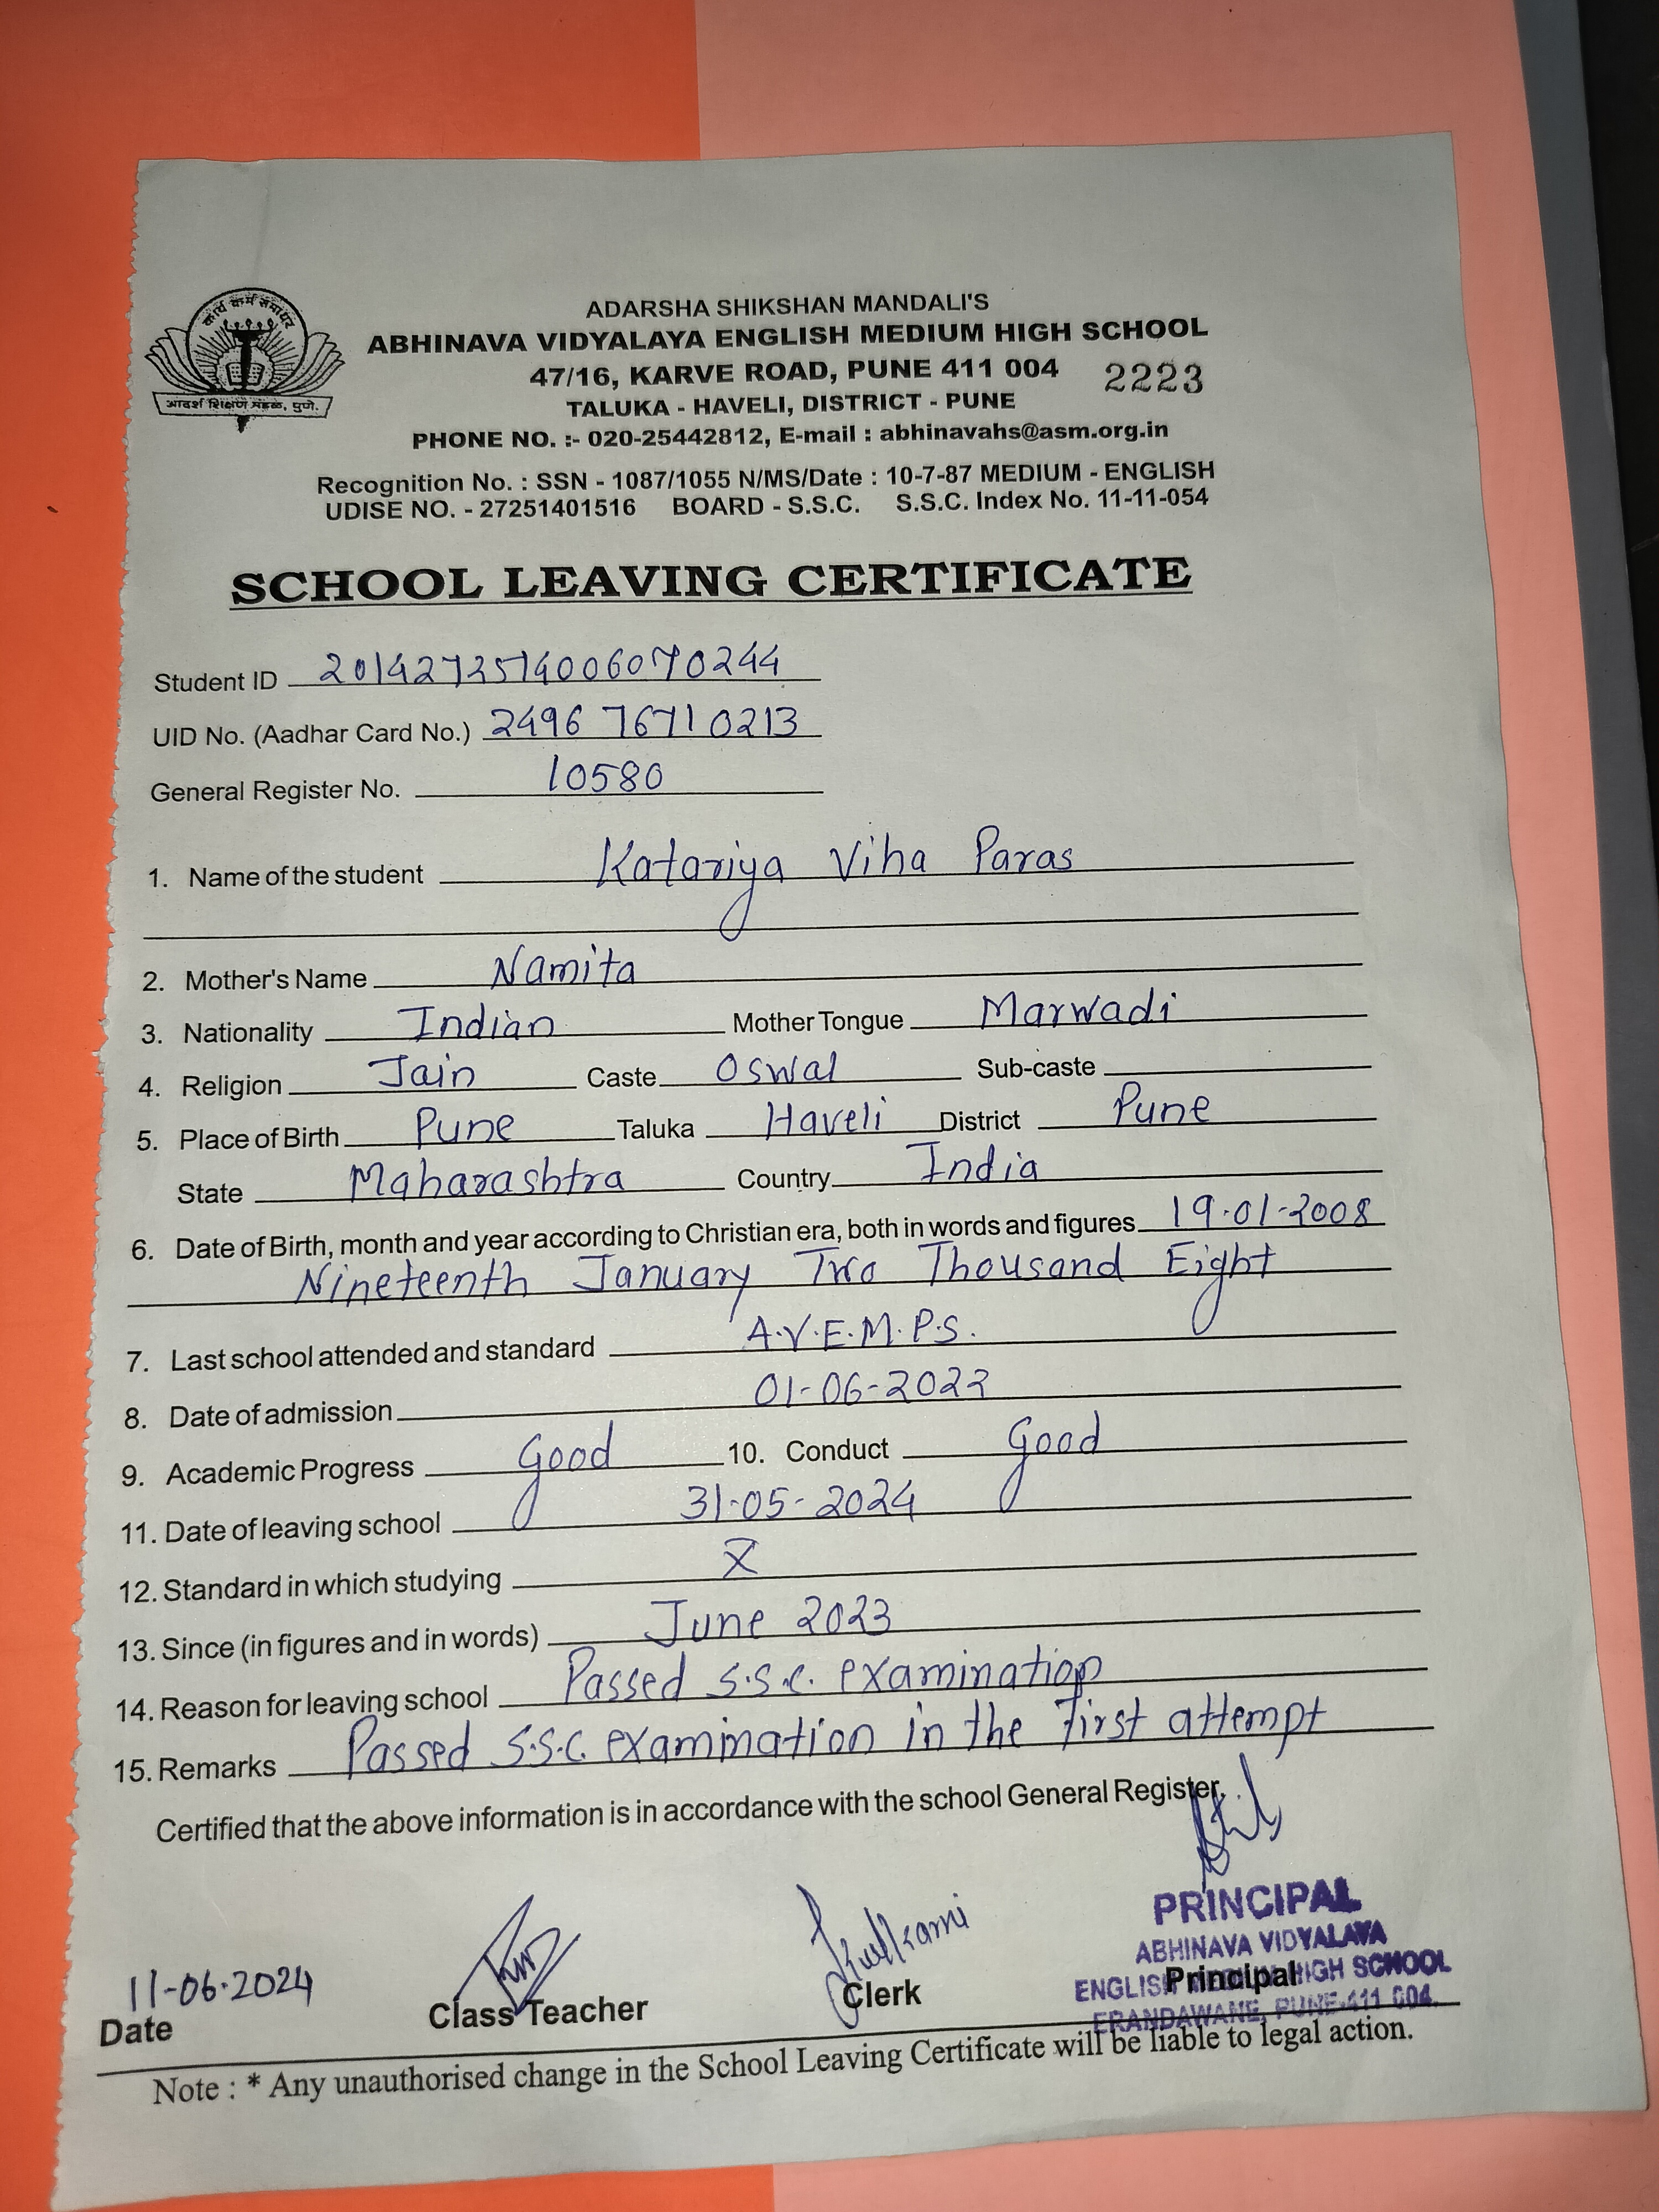 कार्य कर्म समाचर
आदर्श शिक्षण मंडळ, पुणे.
ADARSHA SHIKSHAN MANDALI'S
ABHINAVA VIDYALAYA ENGLISH MEDIUM HIGH SCHOOL
47/16, KARVE ROAD, PUNE 411 004 2223
TALUKA - HAVELI, DISTRICT - PUNE
PHONE NO. :- 020-25442812, E-mail : abhinavahs@asm.org.in
Recognition No. : SSN - 1087/1055 N/MS/Date : 10-7-87 MEDIUM - ENGLISH
UDISE NO. - 27251401516 BOARD - S.S.C. S.S.C. Index No. 11-11-054
SCHOOL LEAVING CERTIFICATE
Student ID 2014272514006070244
UID No. (Aadhar Card No.) 2496 7671 0213
General Register No. 10580
1. Name of the student Katariya Viha Paras
2. Mother's Name Namita
3. Nationality Indian Mother Tongue Marwadi
4. Religion Jain Caste Oswal Sub-caste
5. Place of Birth Pune Taluka Haveli District Pune
State Maharashtra Country India
6. Date of Birth, month and year according to Christian era, both in words and figures 19-01-2008
Nineteenth January Two Thousand Eight
7. Last school attended and standard A.V.E.M.P.S.
8. Date of admission 01-06-2022
9. Academic Progress Good 10. Conduct Good
11. Date of leaving school 31-05-2024
12. Standard in which studying X
13. Since (in figures and in words) June 2023
14. Reason for leaving school Passed S.S.C. examination
15. Remarks Passed S.S.C. examination in the first attempt
Certified that the above information is in accordance with the school General Register.
PRINCIPAL
ABHINAVA VIDYALAYA
ENGLISH MEDIUM HIGH SCHOOL
ERANDAWANE, PUNE-411 004.
11-06-2024 Kulkarni
Date Class Teacher Clerk Principal
Note : * Any unauthorised change in the School Leaving Certificate will be liable to legal action.